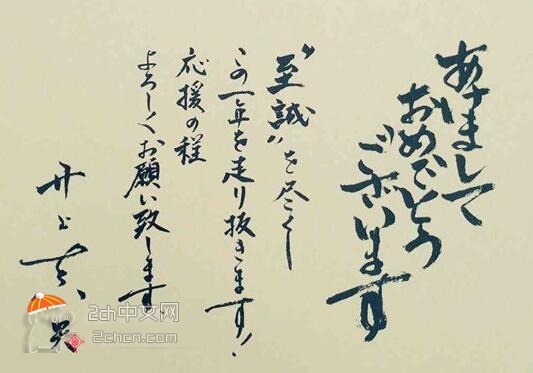 あけまして
おめでとう
ございます
"至誠"を尽くし
この一年を走り抜きます!
応援の程
よろしくお願い致します
井上
2ch中文网
2chcn.com